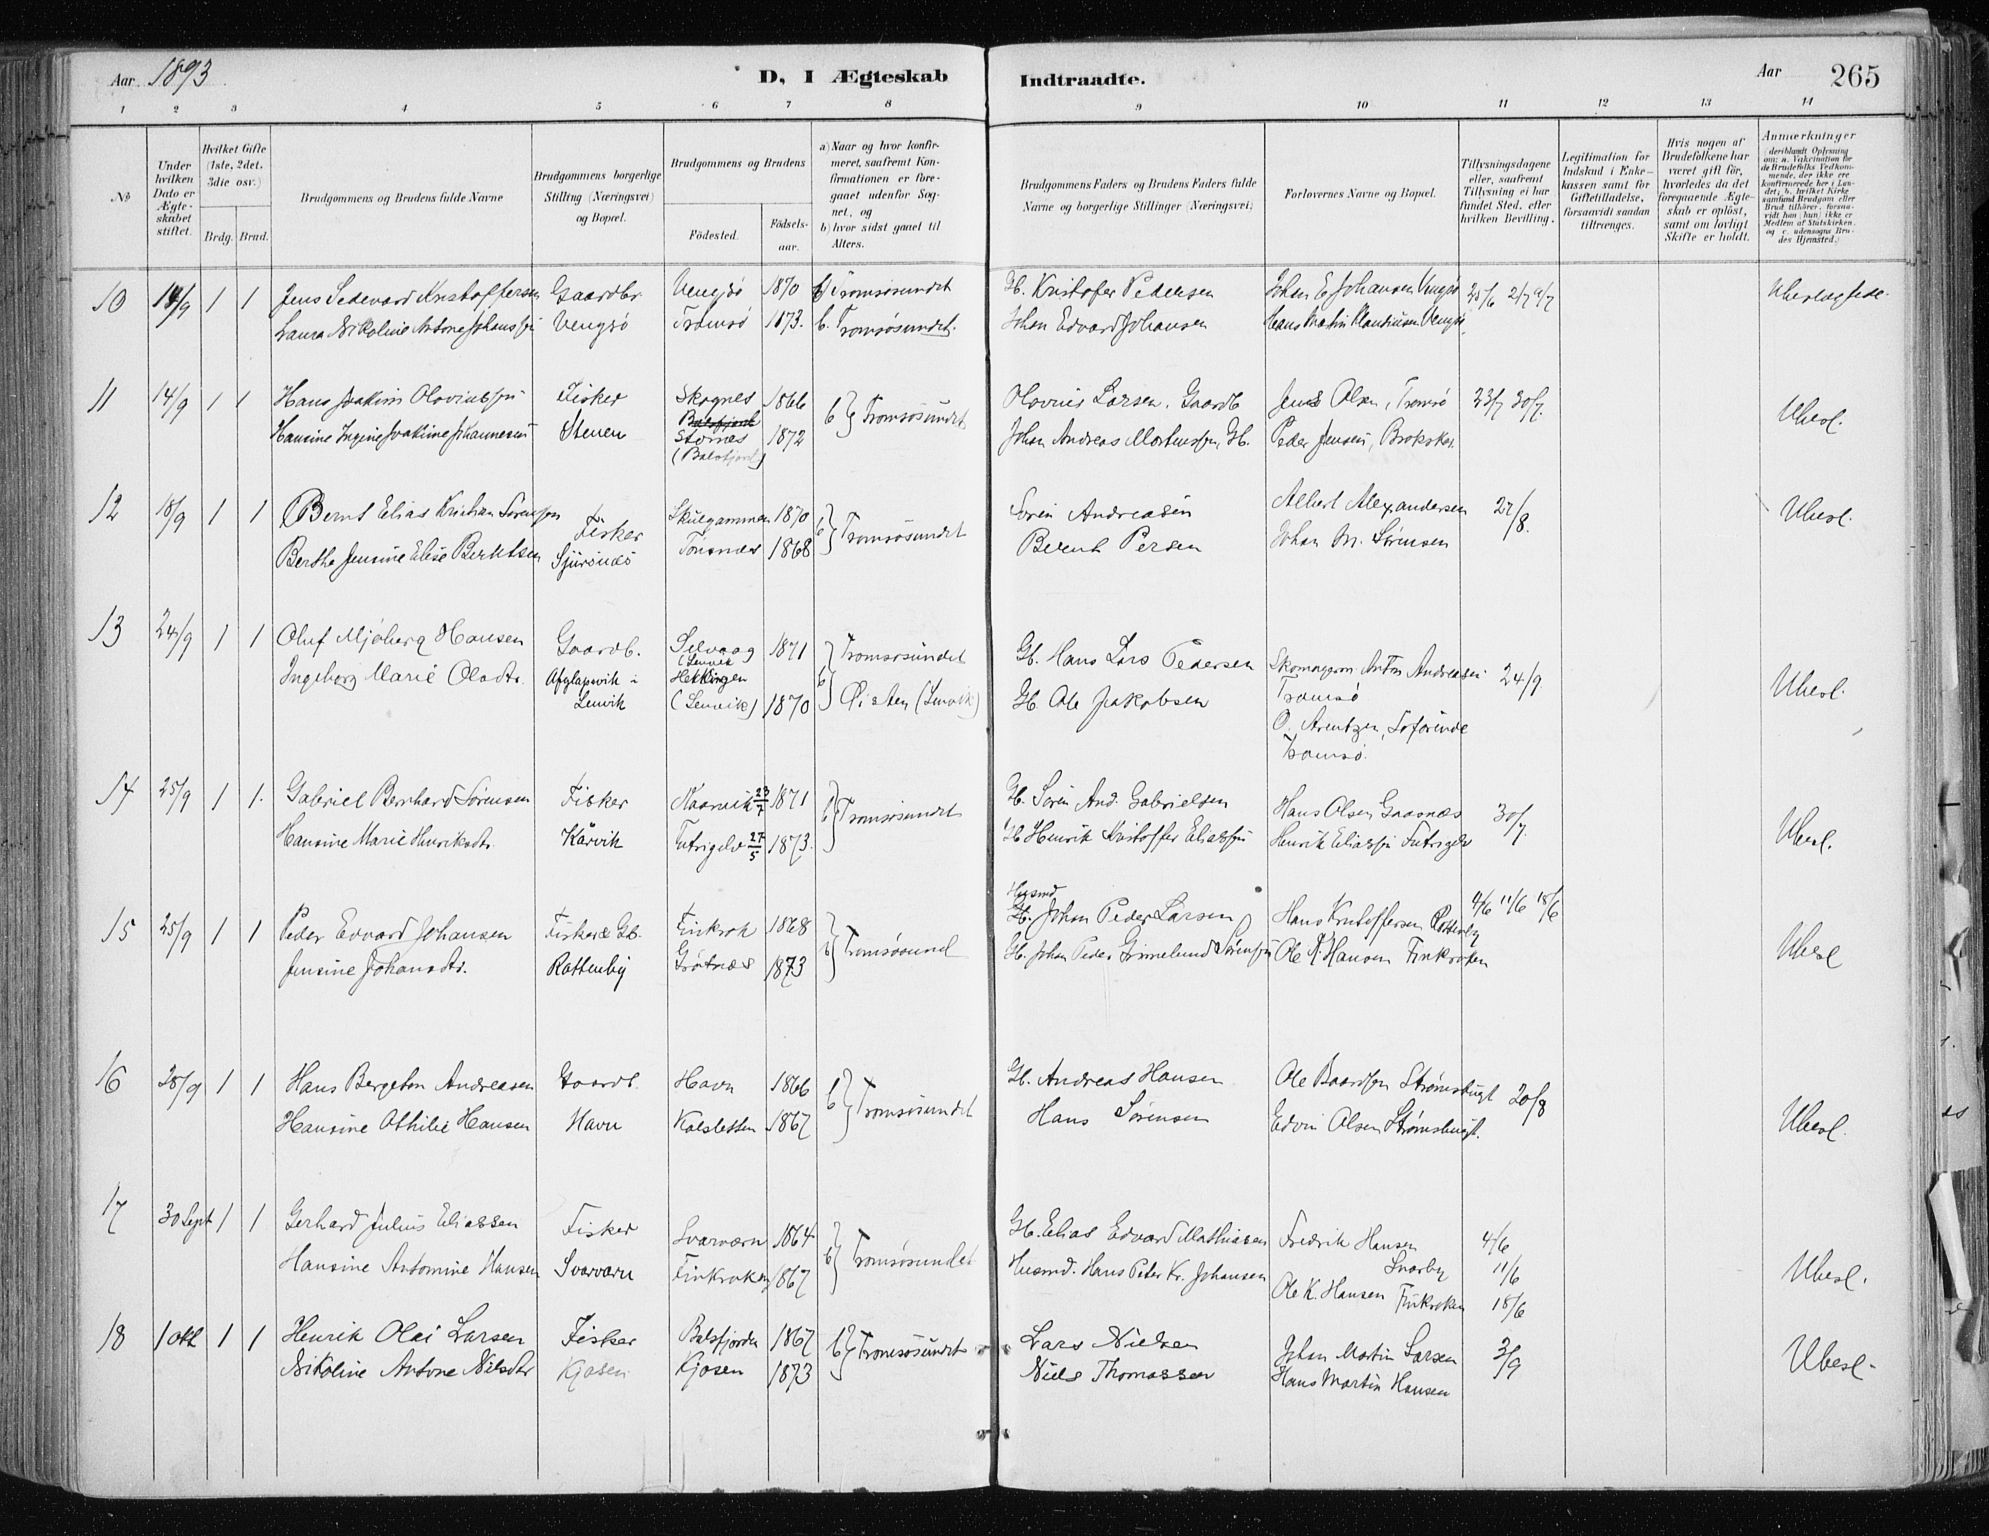 Aar 1893
D, I Ægteskab Indtraadte.
Aar 265
1 2 3 4 5 6 7 8 9 10 11 12 13 14
No
Under hvilken Dato er Ægteskabet stiftet.
Hvilket Gifte (1ste, 2det, 3die osv.)
Brdg. Brud.
Brudgommens og Brudens fulde Navne
Brudgommens borgerlige Stilling (Næringsvei) og Bopæl.
Brudgommens og Brudens
Fødested. Fødselsaar.
a) Naar og hvor konfirmeret, saafremt Konfirmationen er foregaaet udenfor Sognet, og
b) hvor sidst gaaet til Alters.
Brudgommens Faders og Brudens Faders fulde Navne og borgerlige Stillinger (Næringsvei)
Forlovernes Navne og Bopæl.
Tillysningsdagene eller, saafremt Tillysning ei har fundet Sted, efter hvilken Bevilling.
Legitimation for Indskud i Enkekassen samt for Giftetilladelse, forsaavidt saadan tiltrænges.
Hvis nogen af Brudefolkene har været gift før, hvorledes da det foregaaende Ægteskab er opløst, samt om lovligt Skifte er holdt.
Anmærkninger (deriblandt Oplysning om: a. Vakcination for de Brudefolks Vedkommende, der ikke ere konfirmerede her i Landet; b. hvilket Kirkesamfund Brudgom eller Brud tilhører, forsaavidt han (hun) ikke er Medlem af Statskirken, og c. udensogns Brudes Hjemsted.)
10 14/9 1 1 Jens Sedevard Kristoffersen Gaardbr Vengsø 1870 b Tromsøsundet Gb. Kristofer Pedersen Johan E Johansen Vengsø 25/6 2/7 9/7
Laura Nikoline Antone Johansdr Vengsø Tromsø 1873. b. Tromsøsundet. Johan Edvard Johansen Hans Martin Klaudiusen Vengsø
11 14/9 1 1 Hans Joakim Olovinssen Fisker Skognes 1866 b Tromsøsundet Olovnis Larsen, Gaardb Jens Olsen, Tromsø 23/7 30/7. Ubesl.
Hansine Ingine Joakime Johannesen Stenen Balsfjord Stornes (Balsfjord) 1872 Johan Andreas Mortenssen, Gb. Peder Jensen,
12 18/9 1 1 Bernt Elias Kristian Sørensen Fisker Skulgammen 1870 b Tromsøsundet Soren Andreasen Albert Alexandersen 27/8. Ubesl.
Berthe Jensine Elise Berntsen Sjursnæs Tonsnæs 1868 Bernt Persen Johan M. Sørensen
13 24/9 1 1 Oluf Mjøberg Hansen Gaardb. Selvaag (Lenvik 1871 b Tromsøsundet Gb. Hans Lars Pedersen Skomagerm Anton Andreasen Tromsø 24/9. Ubesl.
Ingeborg Marie Olsdtr. Afglapsvik i Lenvik Hekkingen (Lenvik) 1870 Øisten (Lenvik) Gb. Ole Jakobsen O. Arentzen, Tromsø
14 25/9 1 1. Gabriel Bernhard Sørensen Fisker Kaarvik 23/7 1871 b Tromsøsundet Gb. Søren And. Gabrielsen Hans Olsen Gaasnæs 30/7. Ubesl.
Hansine Marie Henriksdtr. Kårvik Futrigelv 27/5 1873. Gb Henrik Kristoffer Eliassen Henrik Eliassen Futrigelv
15 25/9 1 1 Peder Edvard Johansen Fisker & Gb. Finkrok 1868 b Tromsøsund Husmd Gb. Johan Peder Larsen Hans Kristoffersen Rottenby 4/6 11/6 18/6 Ubesl
Jensine Johansdtr. Rottenby Grøtnæs 1873 Gb. Johan Peder Grønelund Sørensen Ole K Hansen Finkroken
16 28/9 1 1 Hans Bergeton Andreasen Gaardb. Havn 1866 b Tromsøsundet Gb. Andreas Hansen Ole Baardsen Strømsbugt 20/8 Ubesl.
Hansine Othilie Hansen Havn Kalsletten 1867 Hans Sørensen Edvin Olsen Strømsbugt.
17 30 Sept 1 1 Gerhard Julius Eliassen Fisker Svarværn 1864 b Tromsøsundet Gb. Elias Edvard Mathiasen Fredrik Hansen Svarby 4/6 11/6 Ubesl.
Hansine Antonine Hansen Svarværn Finkroken 1867 Husmd. Hans Peter Kr. Johansen Ole K. Hansen Finkroken 18/6
18 1 okt 1 1 Henrik Olai Larsen Fisker Balsfjorden 1867 b Tromsøsundet Lars Nielsen Johan Martin Larsen 3/9 Ubesl.
Nikoline Antone Nilsdtr Kjosen Kjosen 1873 Niels Thomassen Hans Martin Hansen